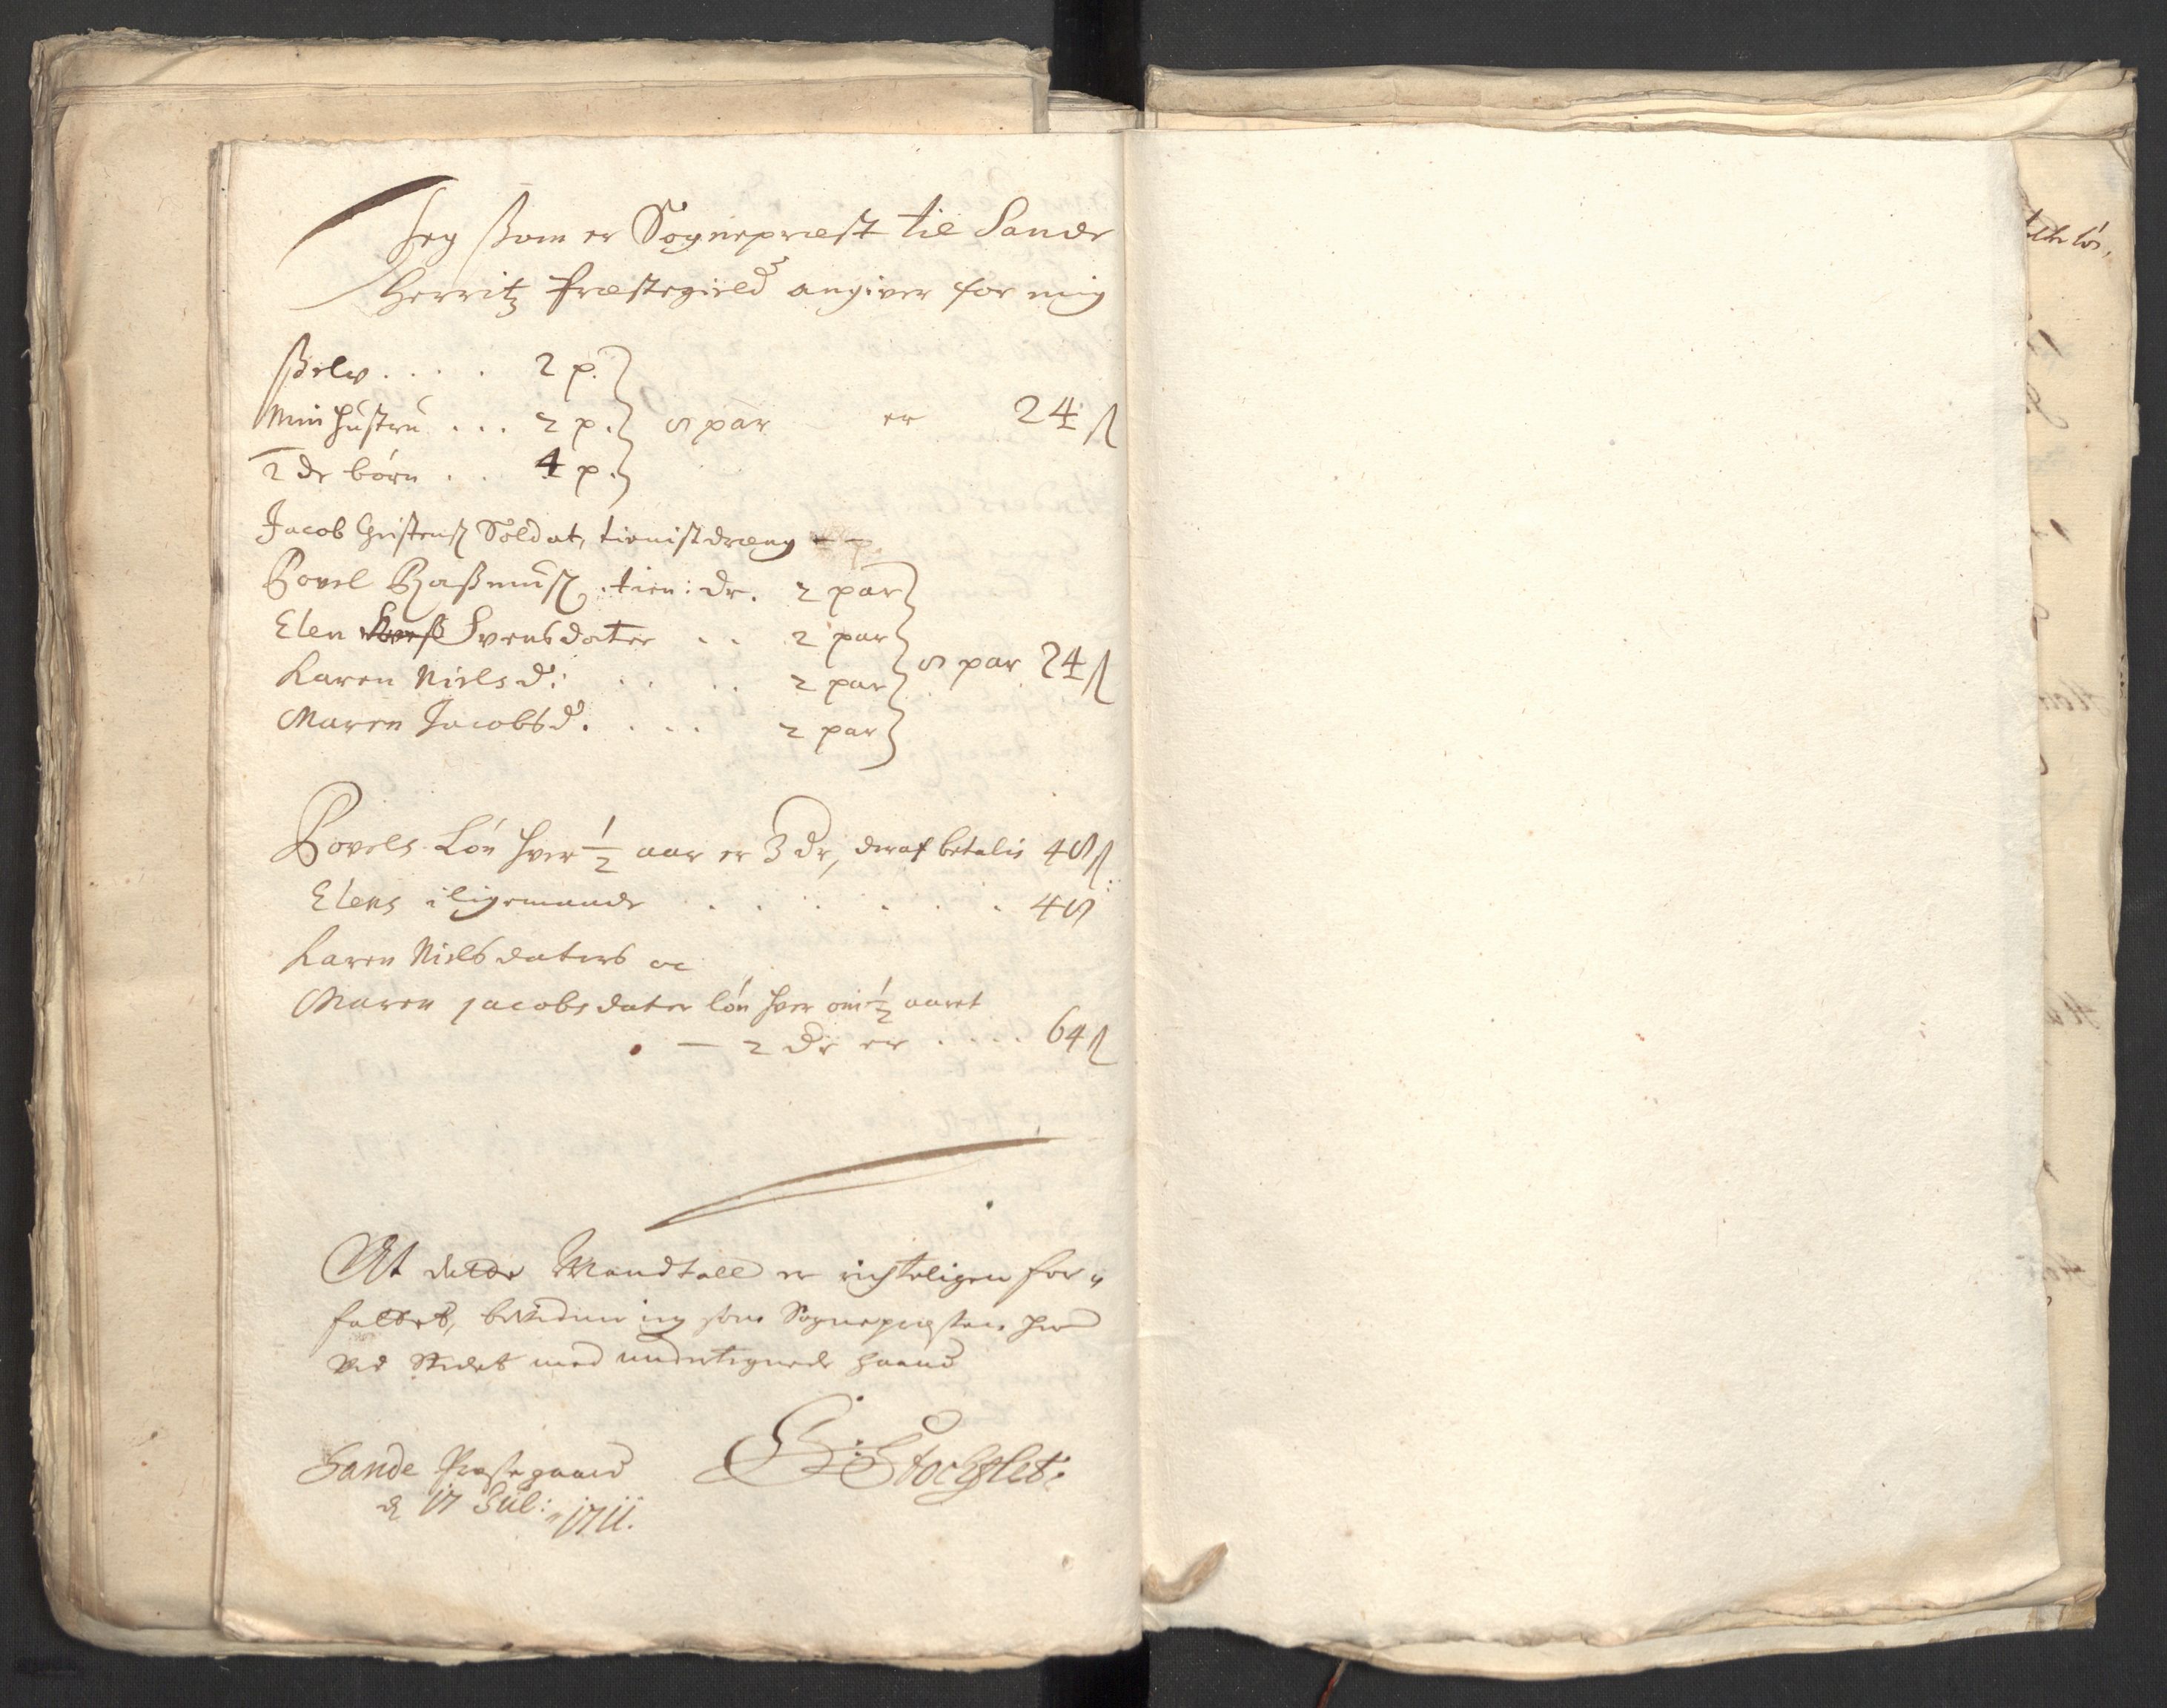 Jeg ßom er Sognepræst til Sande
Herritz Præstegield angiver for mig
ßelv . . . . 2 p.
Min Hustru . . . 2 p. 8 par er 24 ß
2 de børn . . 4 p.
Jacob Christens. Soldat, tienistdræng
Povel Raßmuss. tien: dr. 2 par
Elen Svensdater . . 2 par
Karen Nielsd: . . . . 2 par 8 par 24 ß
Maren Jacobsd. . . . . 2 par
Povels Løn hver 1/2 aar er 3 dr, deraf betalis 48 ß
Elens i ligemaade . . . . . . 48
Karen Nielsdaters oc
Maren Jacobsdater løn hver om 1/2 aaret
— 2 dr er . . . . 64 ß
At dette Mandtall er rigteligen for-
fattet, bevidner ieg som Sognepræsten her
ved Stedet med undertegnede haand
Sande Præstegaard
d 17 Jul: 1711.
Stochflet:
tilke løn,